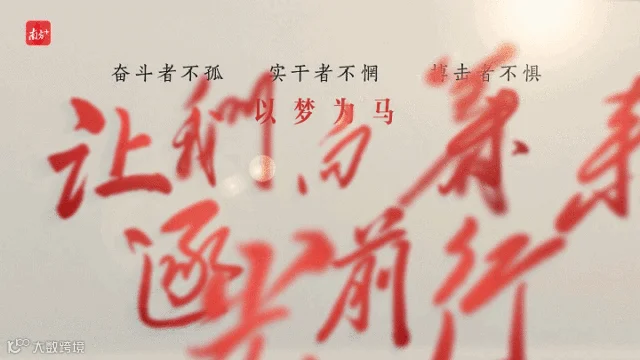 南方+
奋斗者不孤 实干者不惘 搏击者不惧
以梦为马
让我們向
逐光前行
大数跨境